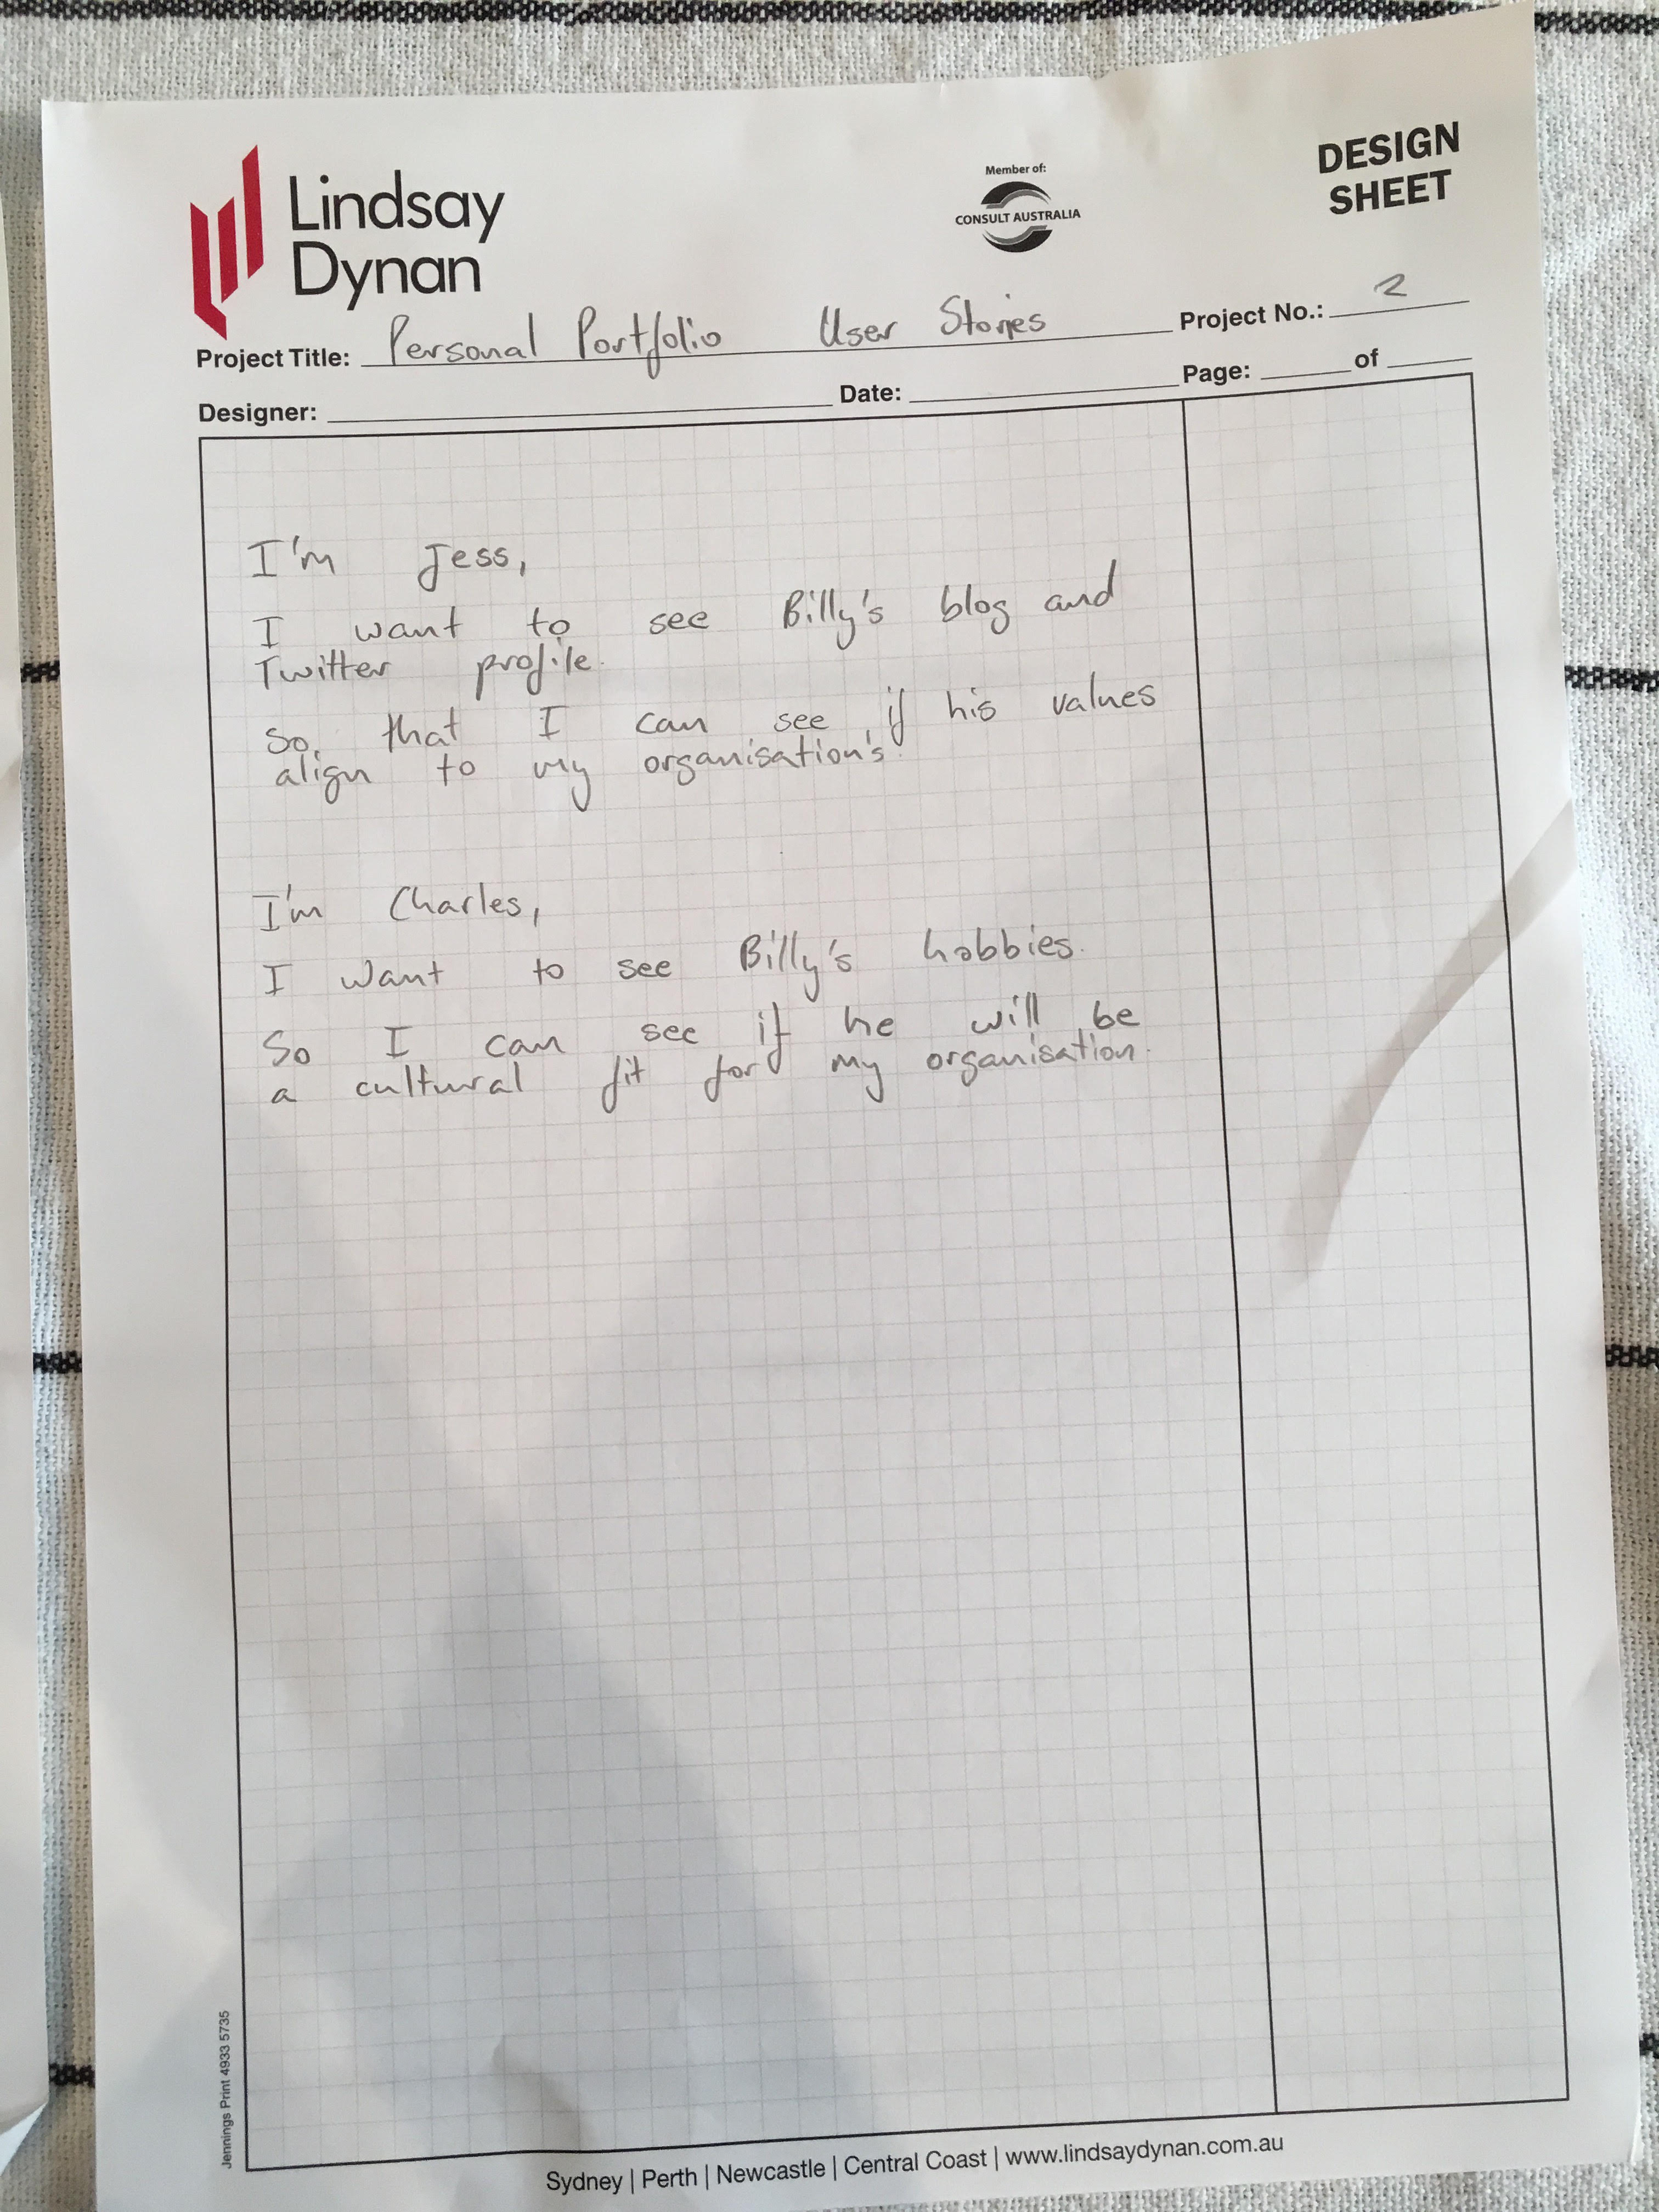 Lindsay
Dynan
Member of:
CONSULT AUSTRALIA
DESIGN
SHEET
Project Title: Personal Portfolio User Stories
Project No.: 2
Designer:
Date:
Page: of
I'm Jess,
I want to see Billy's blog and
Twitter profile.
So, that I can see if his values
align to my organisation's.
I'm Charles,
I want to see Billy's hobbies.
So I can see if he will be
a cultural fit for my organisation.
Jennings Print 4933 5735
Sydney | Perth | Newcastle | Central Coast | www.lindsaydynan.com.au